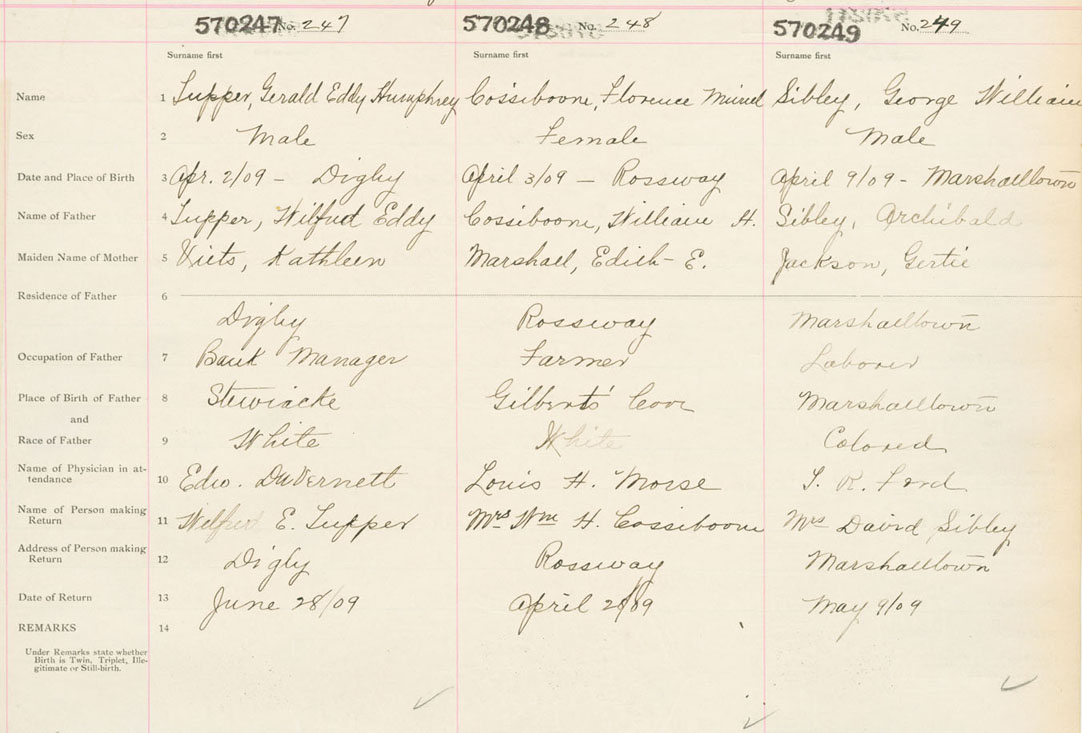 570247 No. 247 570248 No. 248 570249 No. 249
Surname first Surname first Surname first
Name 1 Tupper, Gerald Eddy Humphrey Cossiboone, Florence Muriel Sibley, George William
Sex 2 Male Female Male
Date and Place of Birth 3 Apr. 2/09 - Digby April 3/09 - Rossway April 9/09 - Marshalltown
Name of Father 4 Tupper, Wilfred Eddy Cossiboone, William H. Sibley, Archibald
Maiden Name of Mother 5 Viets, Kathleen Marshall, Edith E. Jackson, Gertie
Residence of Father 6
Digby Rossway Marshalltown
Occupation of Father 7 Bank Manager Farmer Laborer
Place of Birth of Father 8 Stewiacke Gilbert's Cove Marshalltown
and
Race of Father 9 White White Colored
Name of Physician in at-
tendance 10 Edw. DuVernett Louis H. Morse Ford
Name of Person making
Return 11 Wilfred E. Tupper Mrs Wm H. Cossiboone Mrs David Sibley
Address of Person making
Return 12 Digby Rossway Marshalltown
Date of Return 13 June 28/09 April May 9/09
REMARKS 14
Under Remarks state whether
Birth is Twin, Triplet, Ille-
gitimate or Still-birth.